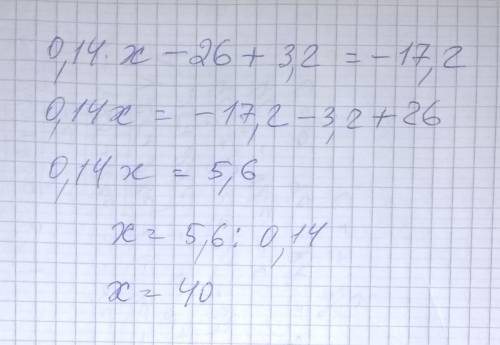 0,14·x - 26 + 3,2 = -17,2
0,14x = -17,2 - 3,2 + 26
0,14x = 5,6
x = 5,6 : 0,14
x = 40